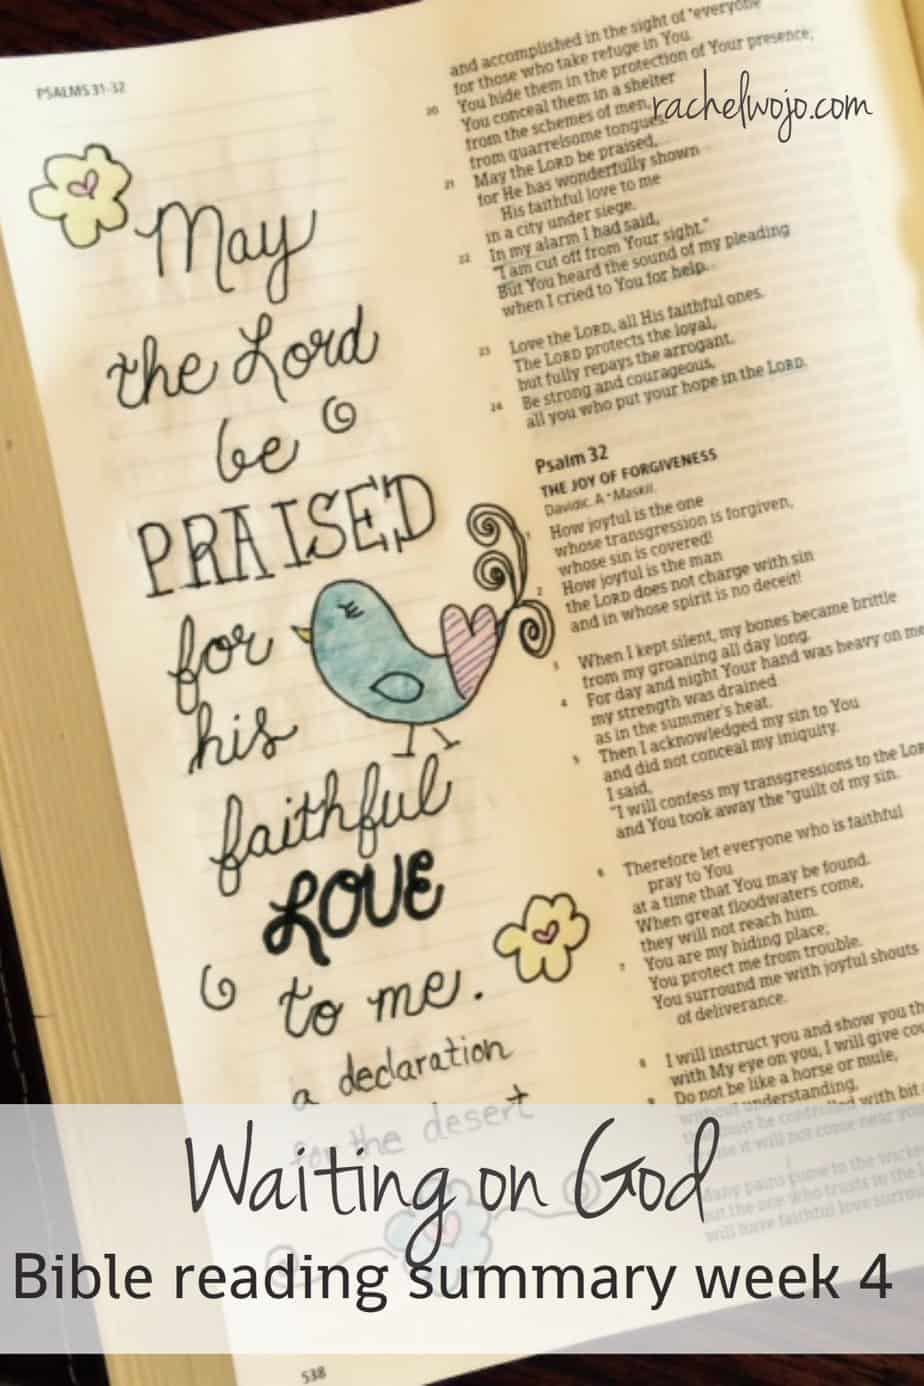 PSALMS 31-32
May
the Lord
be
PRAISED
for
his
faithful
LOVE
to me.
a declaration
for the desert
and accomplished in the sight of "everyone
for those who take refuge in You.
20 You hide them in the protection of Your presence;
You conceal them in a shelter
from the schemes of men,
from quarrelsome tongues.
21 May the LORD be praised,
for He has wonderfully shown
His faithful love to me
in a city under siege.
22 In my alarm I had said,
"I am cut off from Your sight."
But You heard the sound of my pleading
when I cried to You for help.
23 Love the LORD, all His faithful ones.
The LORD protects the loyal,
but fully repays the arrogant.
24 Be strong and courageous,
all you who put your hope in the LORD.
Psalm 32
THE JOY OF FORGIVENESS
Davidic. A *Maskil.
1 How joyful is the one
whose transgression is forgiven,
whose sin is covered!
2 How joyful is the man
the LORD does not charge with sin
and in whose spirit is no deceit!
3 When I kept silent, my bones became brittle
from my groaning all day long.
4 For day and night Your hand was heavy on me
my strength was drained
as in the summer's heat.
5 Then I acknowledged my sin to You
and did not conceal my iniquity.
I said,
"I will confess my transgressions to the LOR
and You took away the *guilt of my sin.
6 Therefore let everyone who is faithful
pray to You
at a time that You may be found.
When great floodwaters come,
they will not reach him.
7 You are my hiding place;
You protect me from trouble.
You surround me with joyful shouts
of deliverance.
8 I will instruct you and show you th
with My eye on you, I will give cou
9 Do not be like a horse or mule,
without understanding,
must be controlled with bit
it will not come near
Many pains come to the wicked
but the one who trusts in the
will have faithful love surro
538
rachelwojo.com
Waiting on God
Bible reading summary week 4